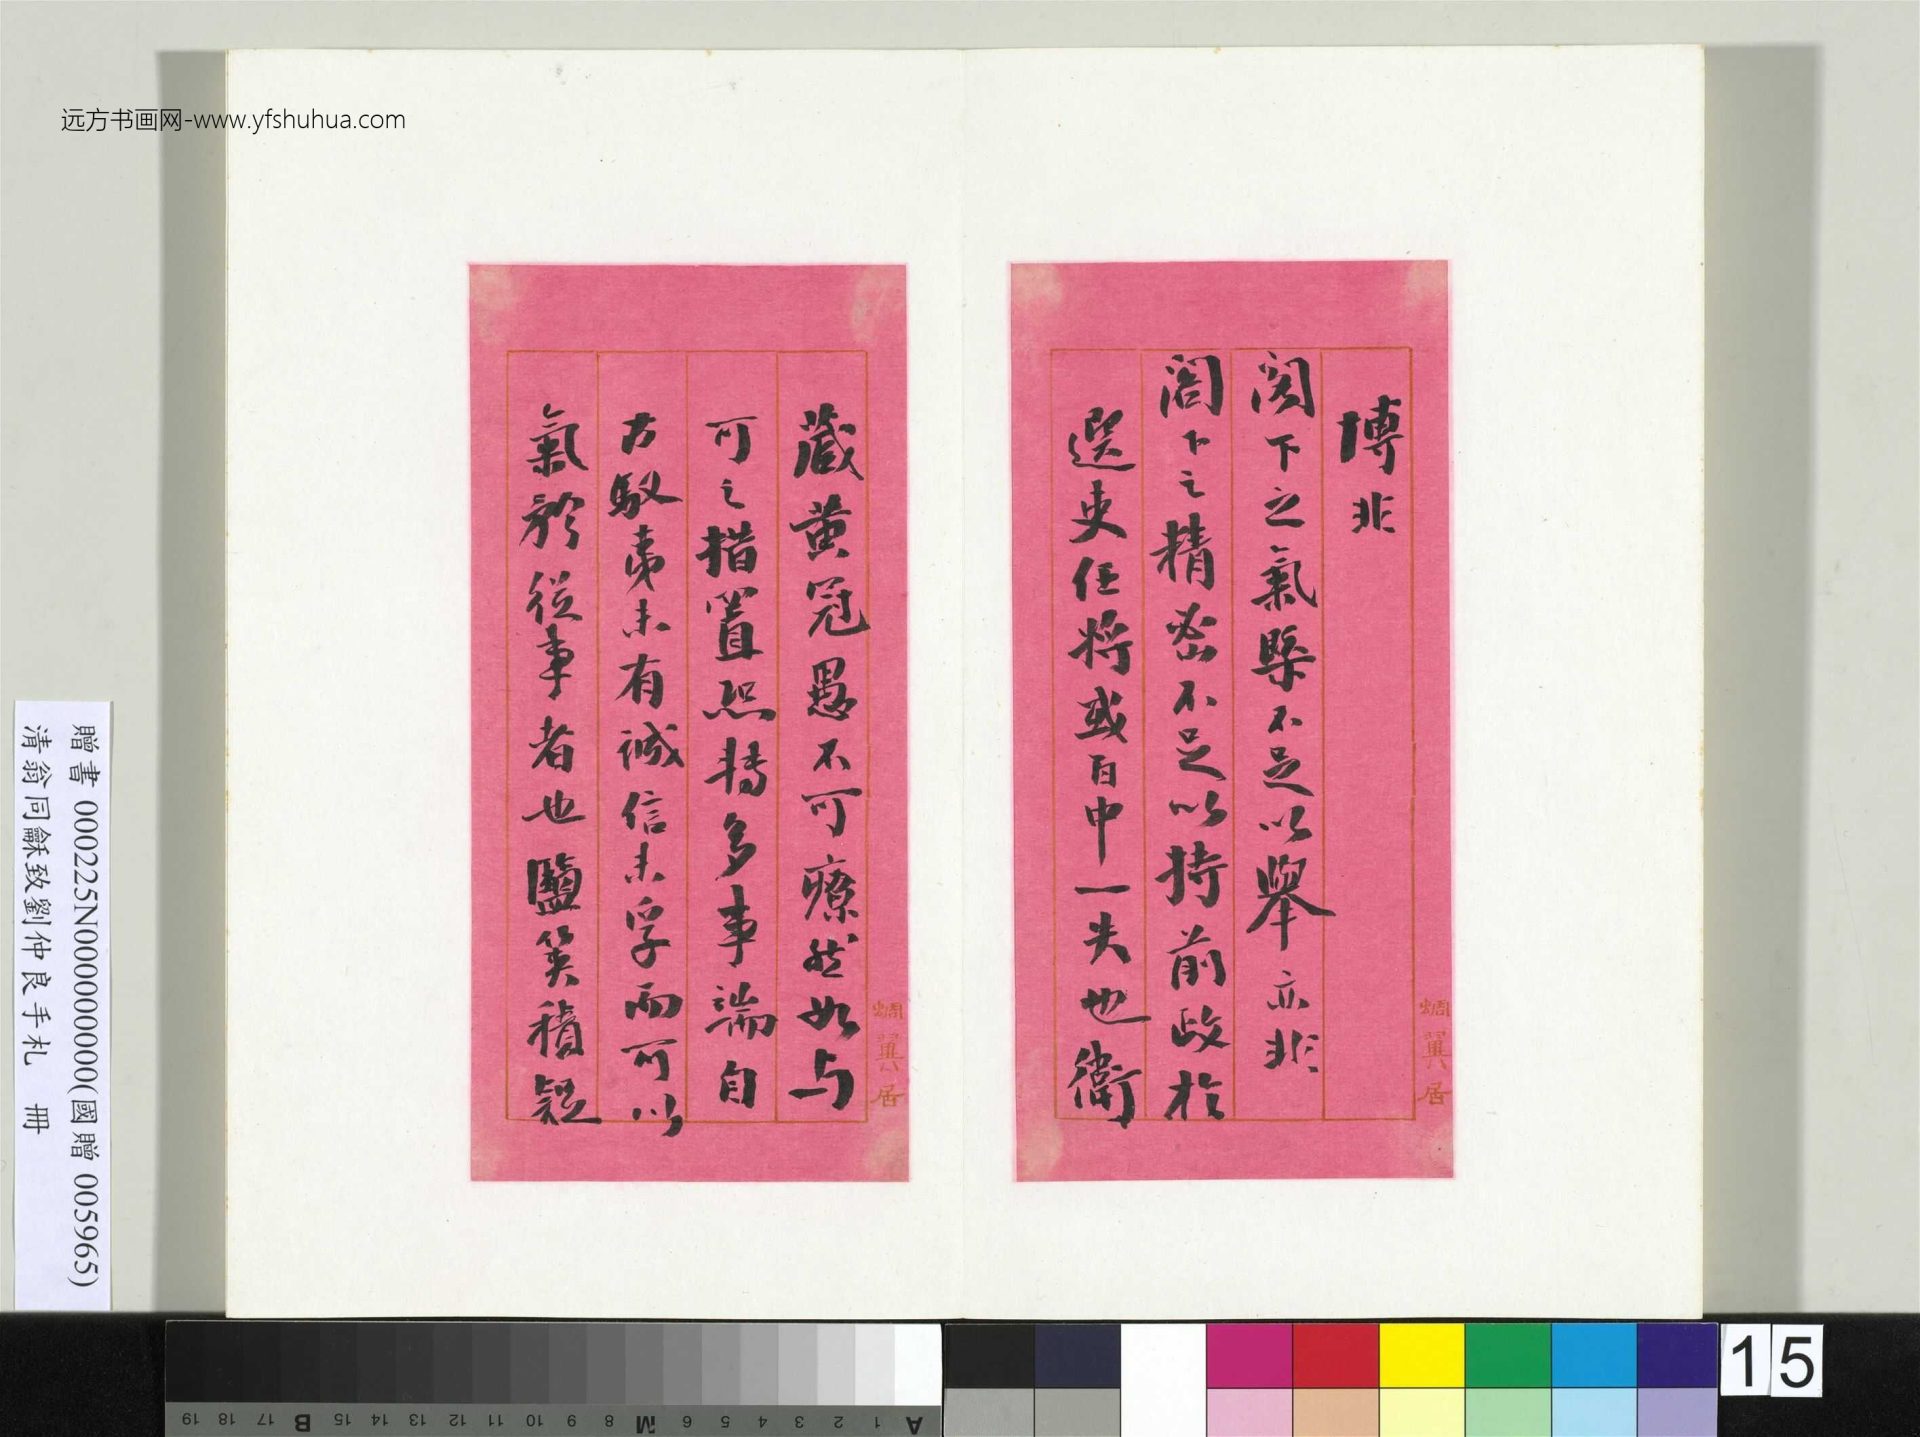 远方书画网-www.yfshuhua.com
博非
閣下之氣槩不足以舉亦非
閣下之精密不足以持前政於
選吏任將或百中一失也衛
蜩翼居
藏黄冠愚不可療然如与
可之措置恐轉多事端自
古馭夷未有誠信未孚而可以
氣矜從事者也鹽筴積疑
蜩翼居
贈書 000225N000000000(國贈 005965)
清翁同龢致劉仲良手札 冊
15
A 1 2 3 4 5 6 M 8 9 10 11 12 13 14 15 B 17 18 19